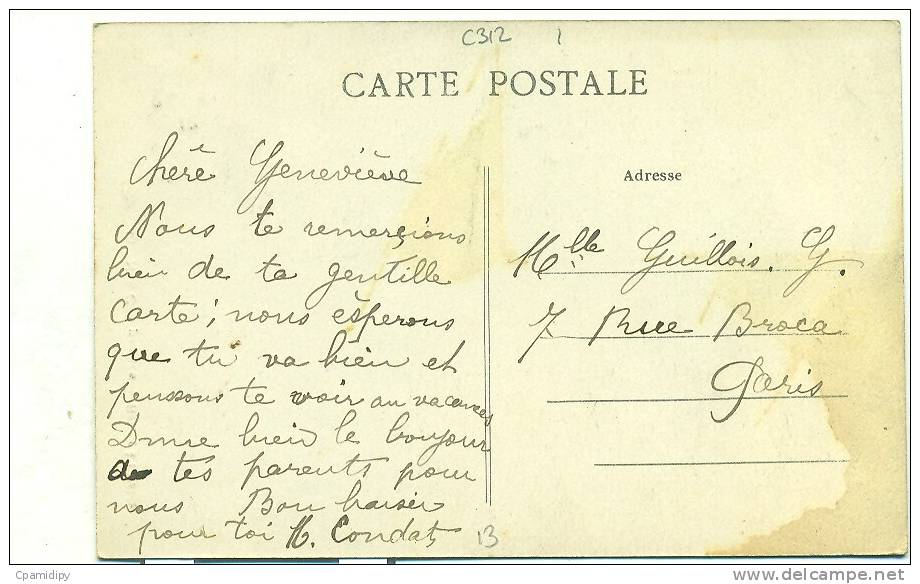 C312 1
CARTE POSTALE
Chère Geneviève
Nous te remerçions
bien de ta gentille
carte; nous ésperons
que tu va bien et
pensons te voir au vacances
Donne bien le bonjour
a tes parents pour
nous Bon baiser
pour toi H. Condat
13
Adresse
Mlle Guillois. G.
7 Rue Broca
Paris
©pamidipy
delcampe.net